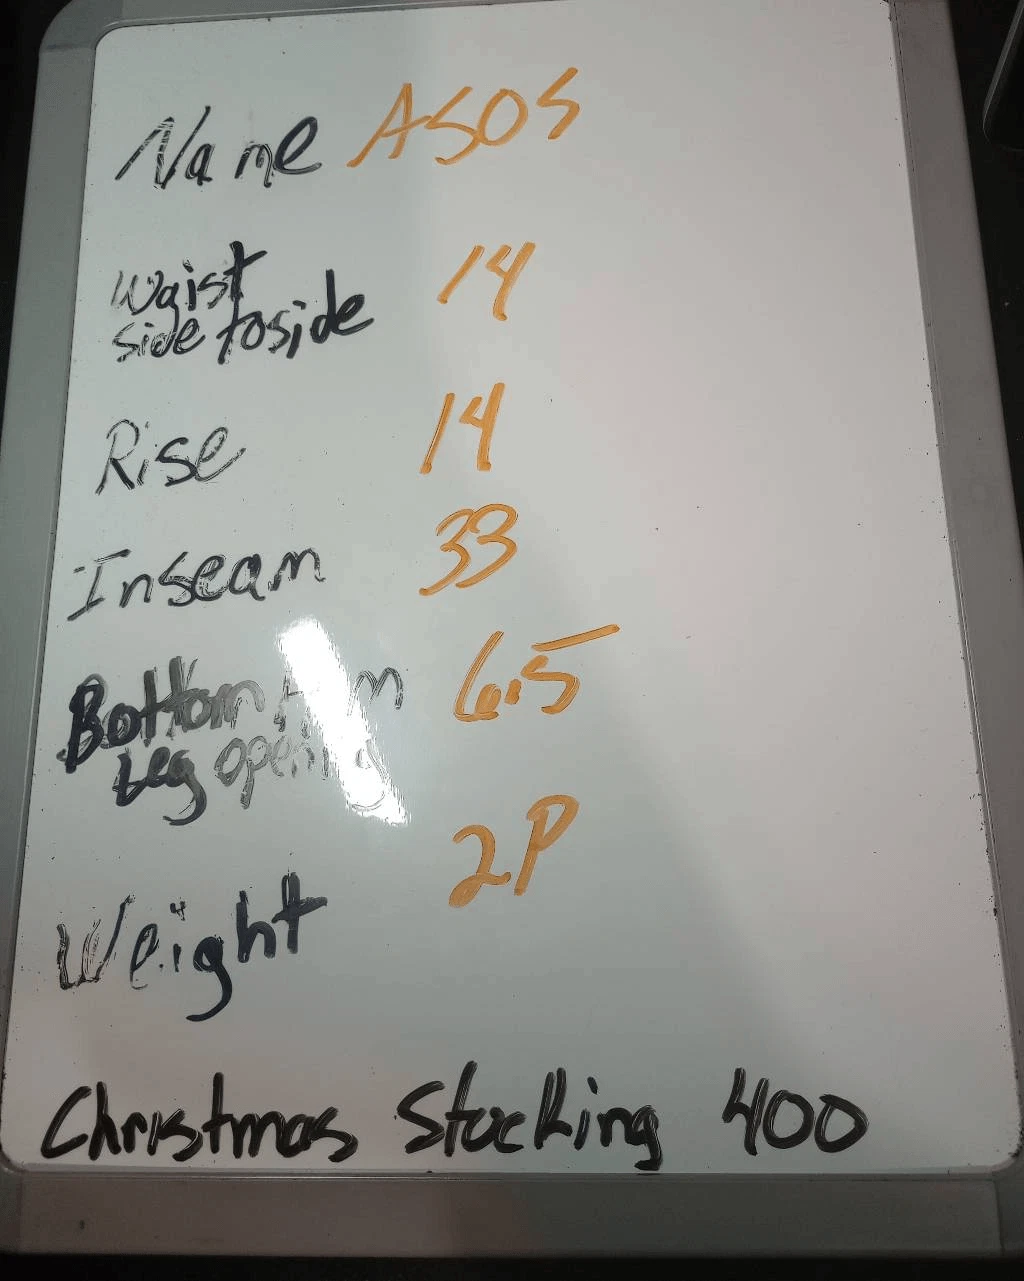 Name ASOS
Waist
side to side 14
Rise 14
Inseam 33
Bottom 6.5
Leg opening
Weight 2P
Christmas Stocking 400